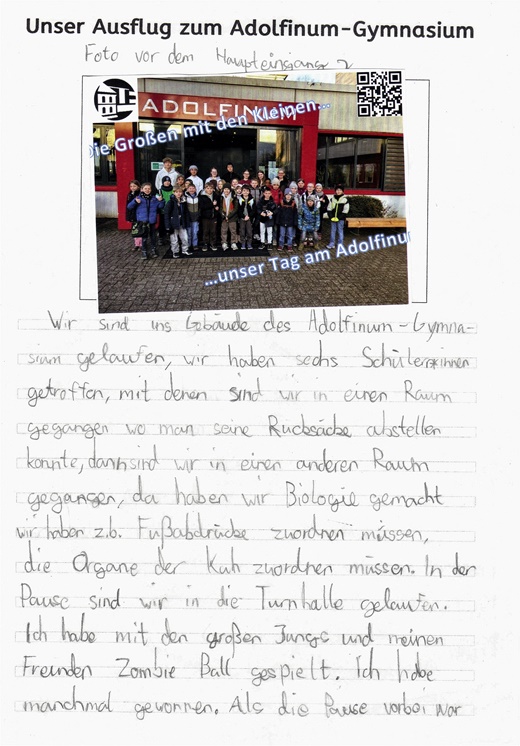 Unser Ausflug zum Adolfinum-Gymnasium
Foto vor dem Haupteingang
ADOLFINUM
Die Großen mit den Kleinen...
...unser Tag am Adolfinu
Wir sind ins Gebäude des Adolfinum-Gymna-
sium gelaufen, wir haben sechs Schüler*innen
getroffen, mit denen sind wir in einen Raum
gegangen wo man seine Rucksäcke abstellen
konnte, dann sind wir in einen anderen Raum
gegangen, da haben wir Biologie gemacht
wir haben z.b. Fußabdrücke zuordnen müssen,
die Organe der Kuh zuordnen müssen. In der
Pause sind wir in die Turnhalle gelaufen.
Ich habe mit den großen Jungs und meinen
Freunden Zombie Ball gespielt. Ich habe
manchmal gewonnen. Als die Pause vorbei war